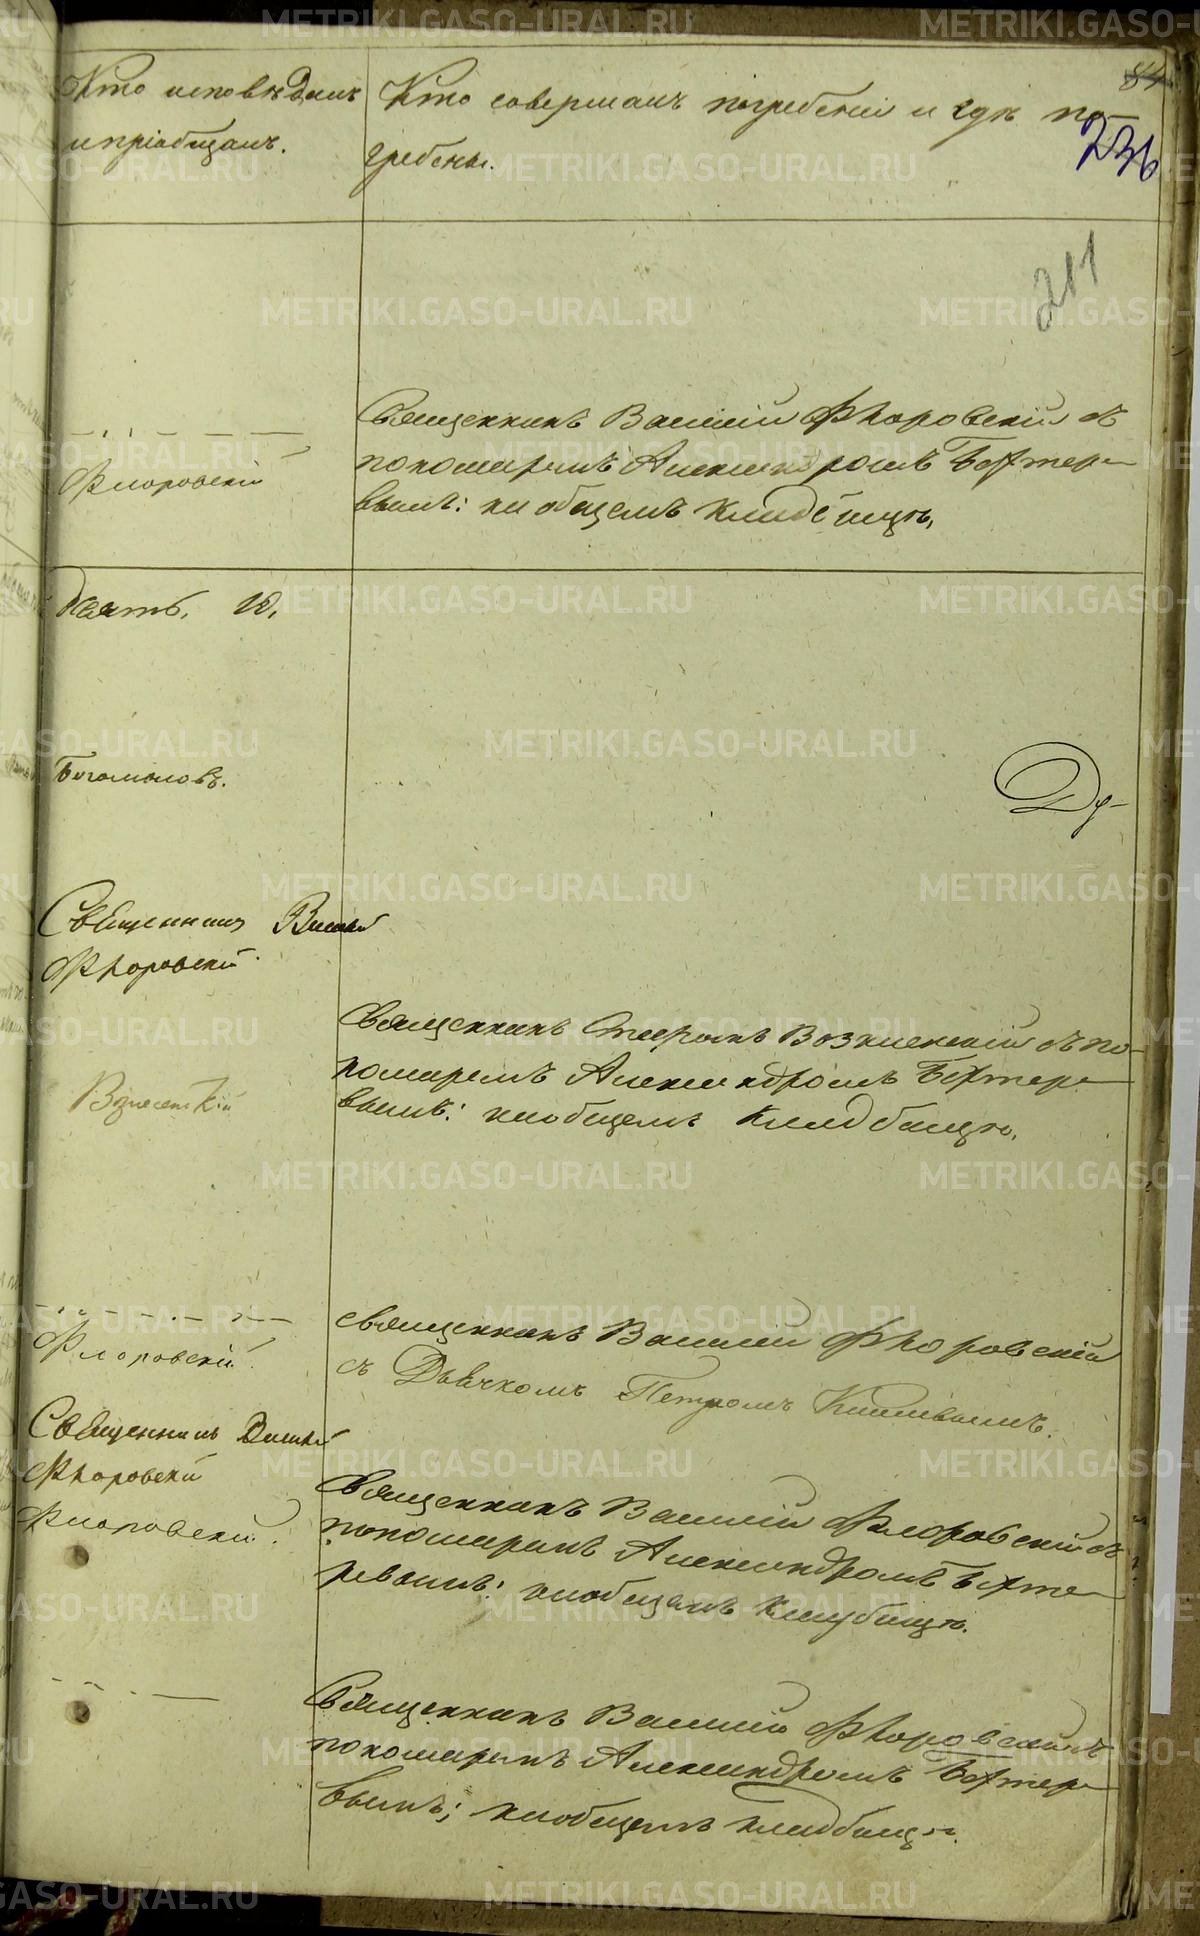 84
Кто исповѣдалъ
и пріобщалъ.
Кто совершалъ погребеніе и гдѣ по-
гребены.
236
211
Флоровскій
Священникъ Василій Флоровскій съ
пономаремъ Александромъ Бехтере
вымъ: на общемъ кладбищѣ.
десять. 10.
Богомоловъ.
Ду-
Священникъ Василій
Флоровскій.
Вознесенскій
Священникъ Вознесенскій съ по-
номаремъ Александромъ Бехтере
вымъ: на общемъ кладбищѣ.
Флоровскій.
священникъ Василій Флоровскій
съ Дьячкомъ Петромъ
Священникъ Василій
Флоровскій
Флоровскій.
Священникъ Василій Флоровскій съ
пономаремъ Александромъ Бехте
ревымъ: на общемъ кладбищѣ.
Священникъ Василій Флоровскій съ
пономаремъ Александромъ Бехтере
вымъ; на общемъ кладбищѣ.
METRIKI.GASO-URAL.RU